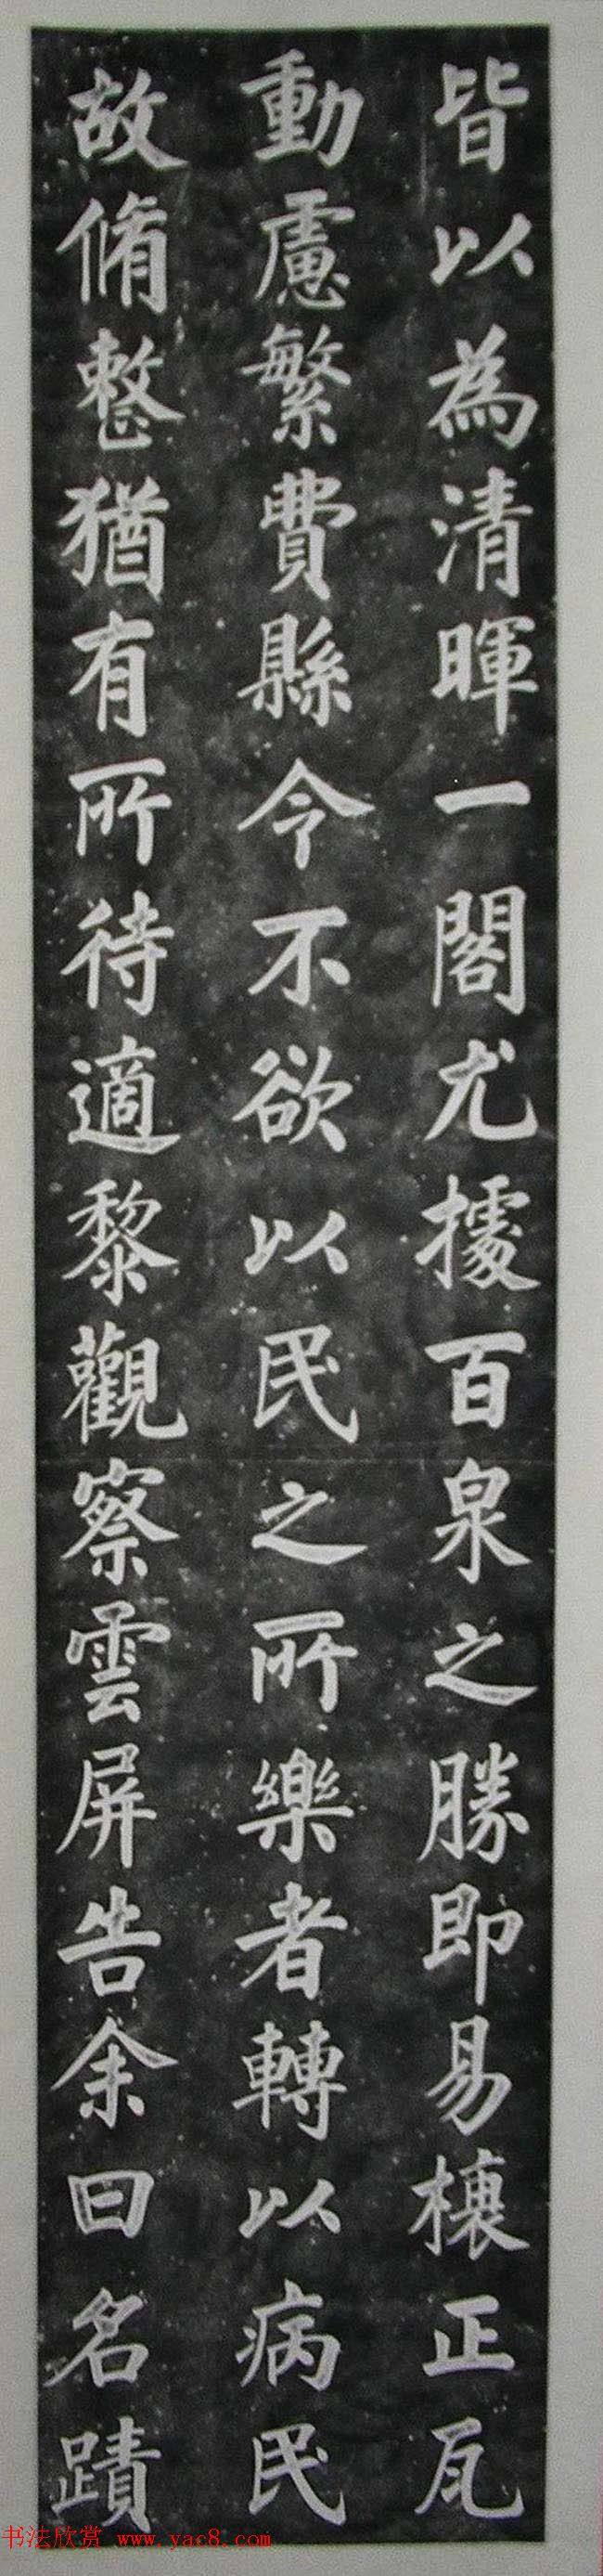 皆以為清暉一閣尤據百泉之勝即易榱正瓦
動慮繁費縣令不欲以民之所樂者轉以病民
故脩整猶有所待適黎觀察雲屏告余曰名蹟
书法欣赏 www.yac8.com